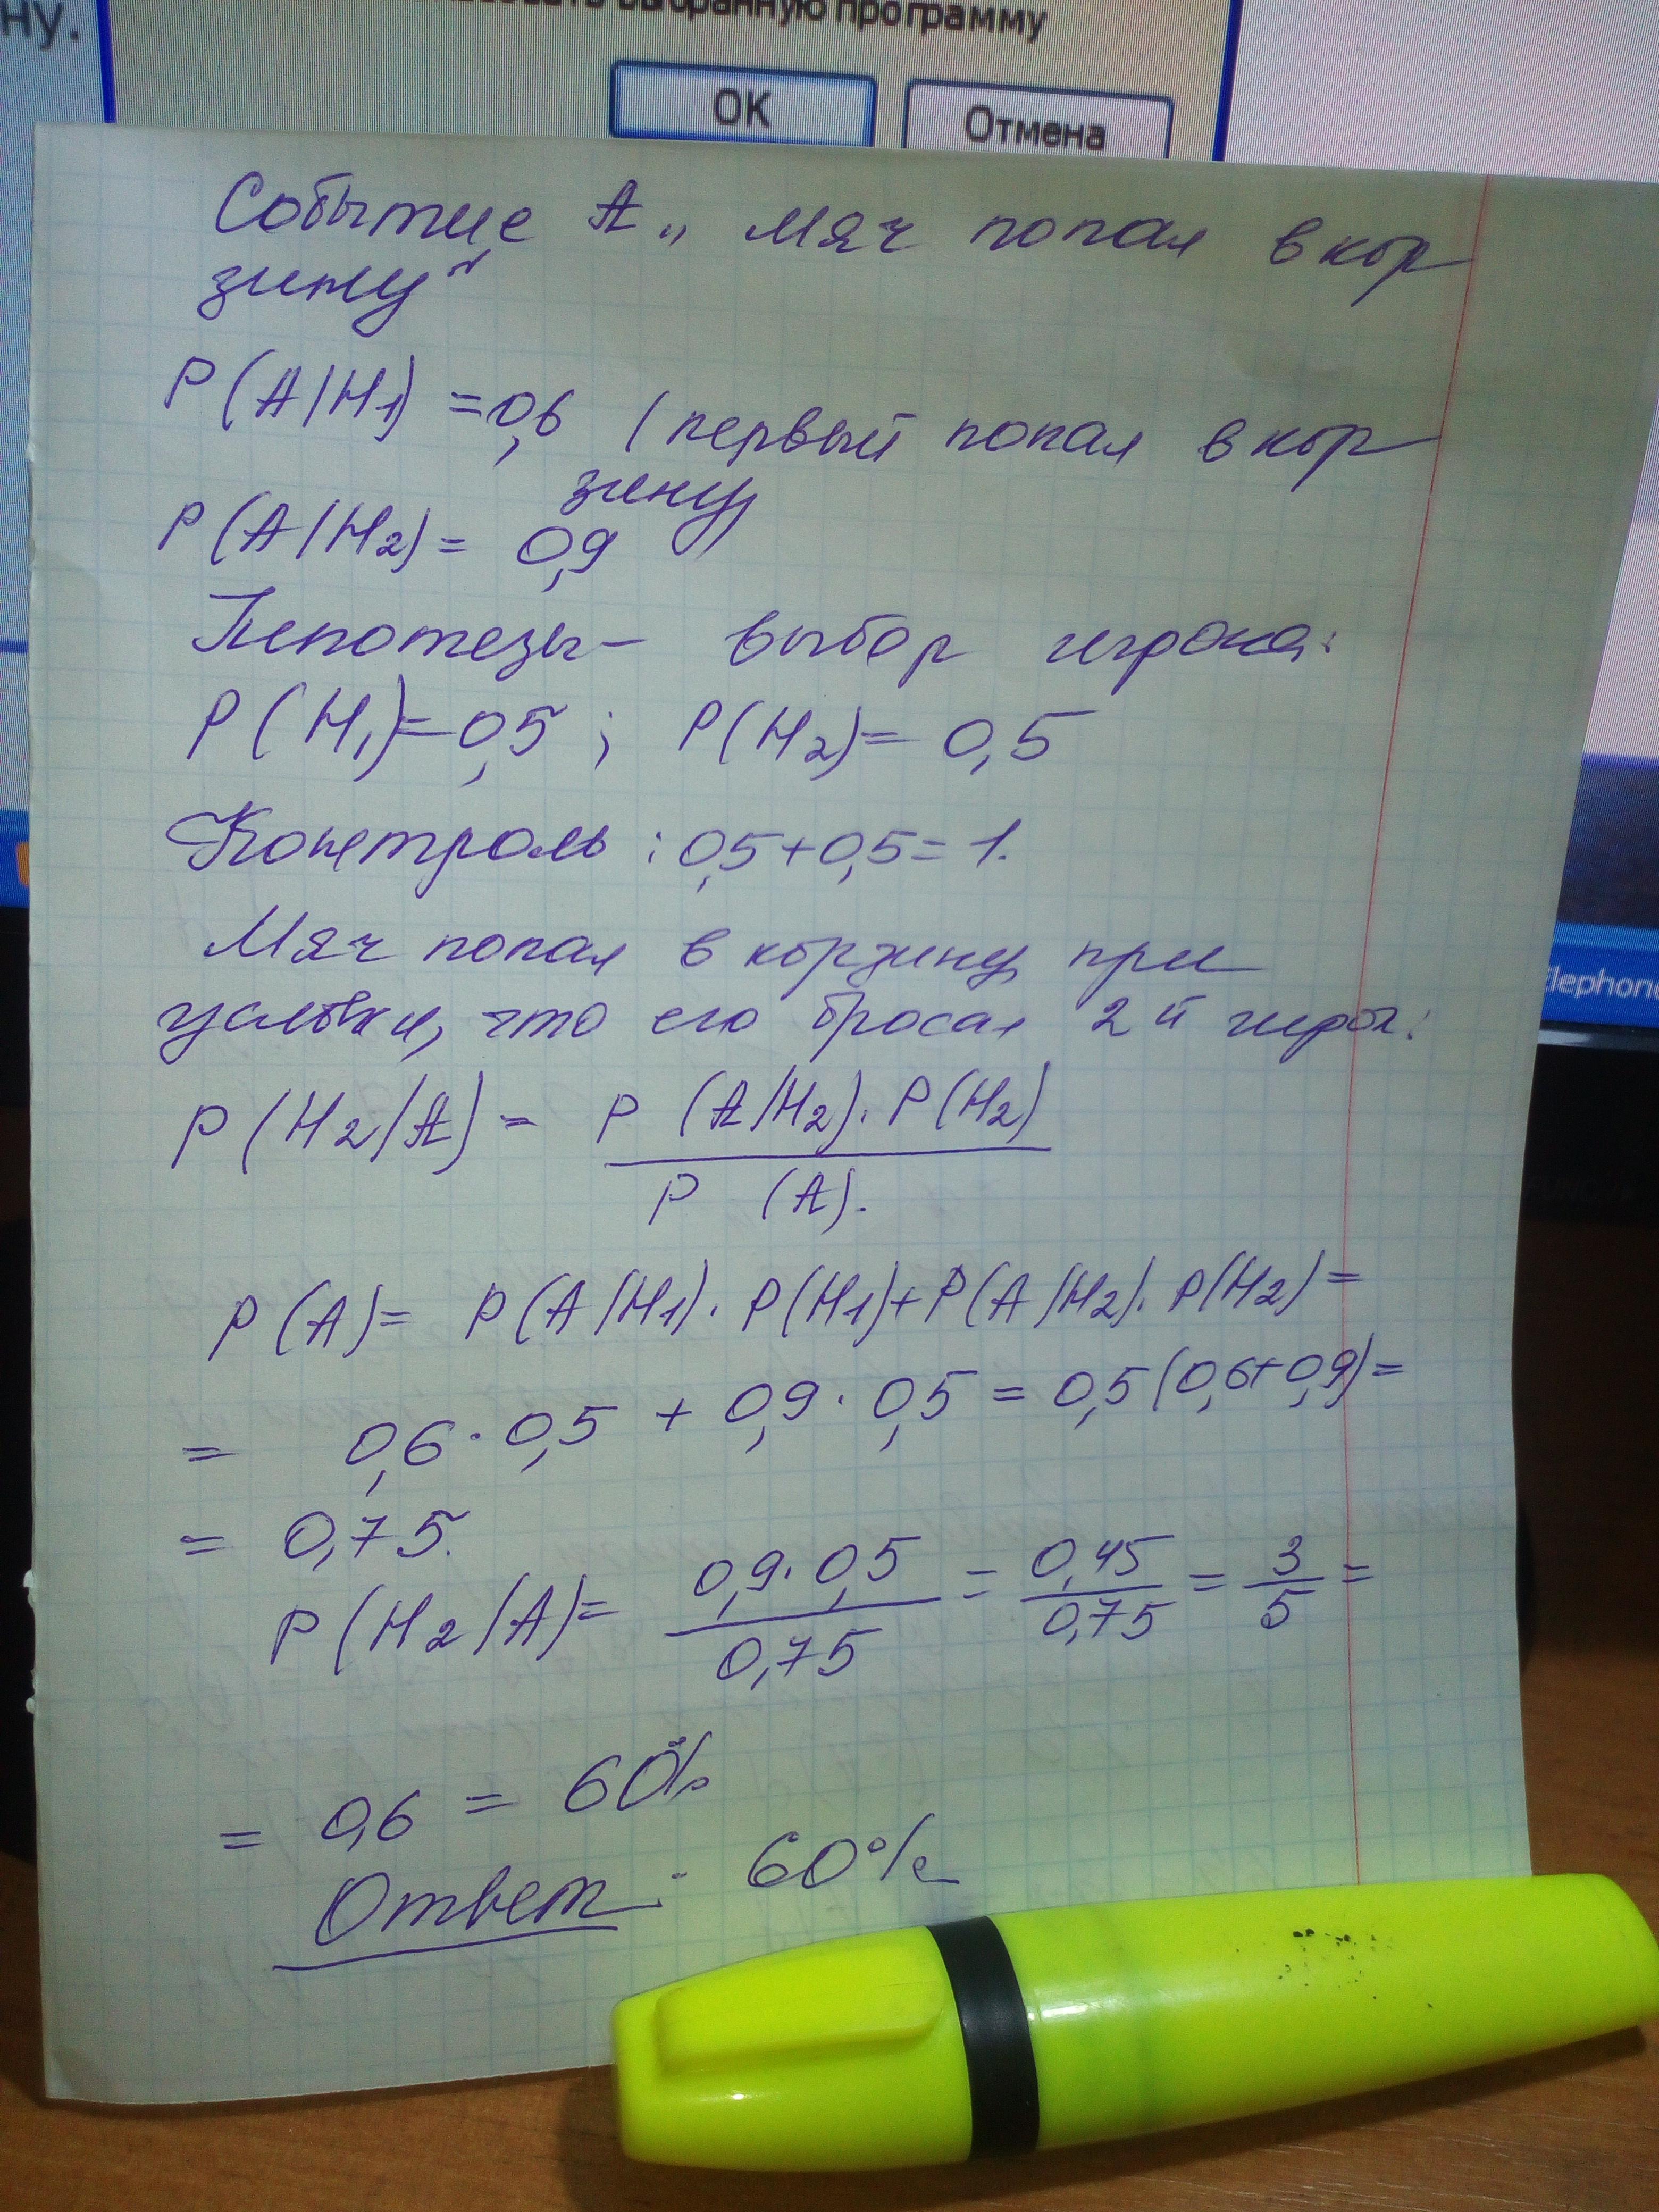 ну.
выбранную программу
ОК
Отмена
Событие A „ мяч попал в кор
зину“
P(A/H1) = 0,6 (первый попал в кор
зину)
P(A/H2) = 0,9
Гипотезы – выбор игрока:
P(H1) = 0,5 ; P(H2) = 0,5
Контроль : 0,5 + 0,5 = 1.
Мяч попал в корзину при
условии, что его бросал 2й игрок:
P(H2/A) = P (A/H2) · P(H2)
P (A).
P(A) = P(A/H1) · P(H1) + P(A/H2) · P(H2) =
= 0,6 · 0,5 + 0,9 · 0,5 = 0,5 (0,6 + 0,9) =
= 0,75.
P(H2/A) = 0,9 · 0,5 / 0,75 = 0,45 / 0,75 = 3/5 =
= 0,6 = 60%
Ответ : 60%
Elephon